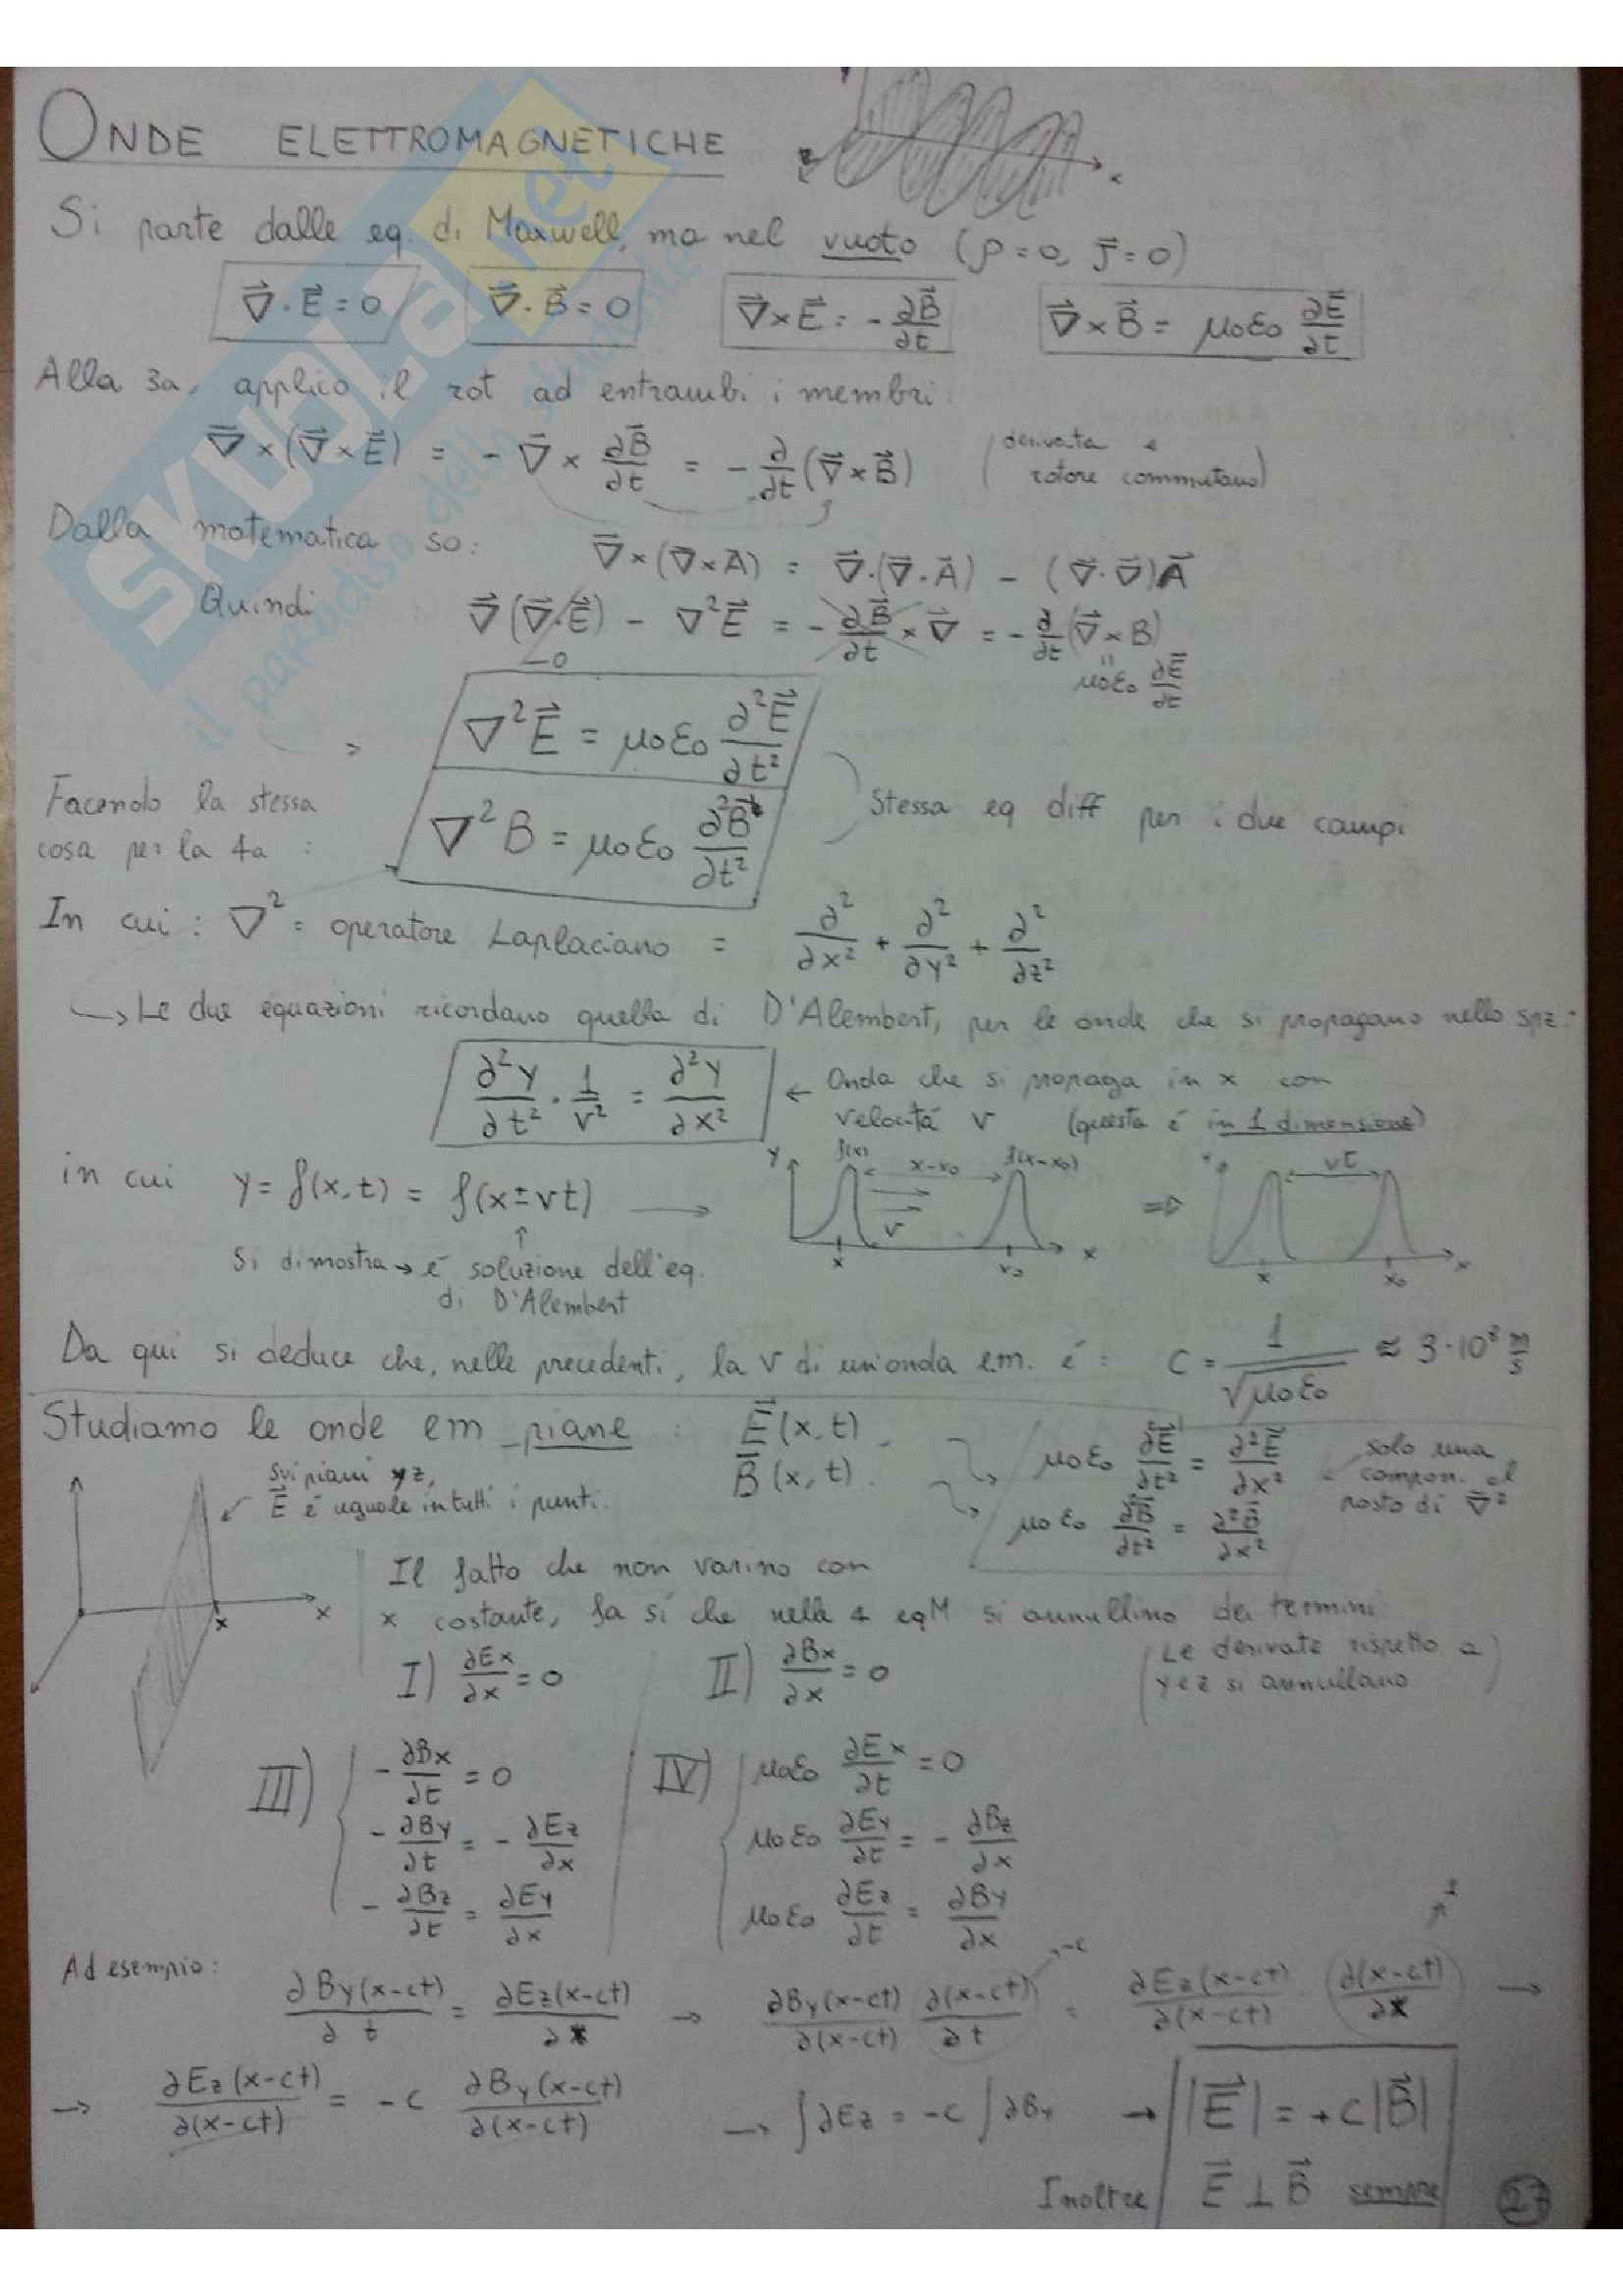 ONDE ELETTROMAGNETICHE
Si parte dalle eq. di Maxwell, ma nel vuoto (ρ=0, J⃗=0)
∇⃗·E⃗=0 ∇⃗·B⃗=0 ∇⃗×E⃗=-∂B⃗/∂t ∇⃗×B⃗= μ0ε0 ∂E⃗/∂t
Alla 3a, applico il rot ad entrambi i membri:
∇⃗×(∇⃗×E⃗) = -∇⃗× ∂B⃗/∂t = -∂/∂t(∇⃗×B⃗) (derivata e
rotore commutano)
Dalla matematica so: ∇⃗×(∇⃗×A⃗) = ∇⃗·(∇⃗·A⃗) - (∇⃗·∇⃗)A⃗
Quindi : ∇⃗(∇⃗·E⃗) - ∇²E⃗ = -∂B⃗/∂t×∇⃗ = -∂/∂t(∇⃗×B)
=0 μ0ε0 ∂E⃗/∂t
∇²E⃗ = μ0ε0 ∂²E⃗/∂t²
Facendo la stessa
cosa per la 4a :
∇²B = μ0ε0 ∂²B⃗/∂t²
Stessa eq diff per i due campi
In cui : ∇² = operatore Laplaciano = ∂²/∂x² + ∂²/∂y² + ∂²/∂z²
↳ Le due equazioni ricordano quella di D'Alembert, per le onde che si propagano nello spz.:
∂²y/∂t² · 1/v² = ∂²y/∂x² ← Onda che si propaga in x con
velocitá v (questa é in 1 dimensione)
in cui y= f(x,t) = f(x±vt) →
y f(x) x-x0 f(x-x0) v x x0 x
⇒ y vt x x0 x
Si dimostra → é soluzione dell'eq.
di D'Alembert
Da qui si deduce che, nelle precedenti, la v di un'onda em. é : c = 1/√μ0ε0 ≈ 3·10⁸ m/s
Studiamo le onde em piane : E⃗(x,t)
B⃗(x,t).
μ0ε0 ∂²E⃗/∂t² = ∂²E⃗/∂x²
μ0ε0 ∂²B⃗/∂t² = ∂²B⃗/∂x²
solo una
compon. al
posto di ∇⃗²
Sui piani yz,
E⃗ é uguale in tutti i punti.
x x
Il fatto che non varino con
x costante, fa sí che nelle 4 eqM si annullino dei termini
(Le derivate rispetto a
y e z si annullano)
I) ∂Ex/∂x=0 II) ∂Bx/∂x=0
III) -∂Bx/∂t = 0 IV) μ0ε0 ∂Ex/∂t = 0
-∂By/∂t = -∂Ez/∂x μ0ε0 ∂Ey/∂t = -∂Bz/∂x
-∂Bz/∂t = ∂Ey/∂x μ0ε0 ∂Ez/∂t = ∂By/∂x
Ad esempio: ∂By(x-ct)/∂t = ∂Ez(x-ct)/∂x → ∂By(x-ct)/∂(x-ct) ∂(x-ct)/∂t = ∂Ez(x-ct)/∂(x-ct) · ∂(x-ct)/∂x →
-c 1
→ ∂Ez(x-ct)/∂(x-ct) = -c ∂By(x-ct)/∂(x-ct) → ∫∂Ez = -c ∫∂By → |E⃗| = +c|B⃗|
Inoltre E⃗ ⊥ B⃗ sempre
27
SKUOLA.net
il paradiso dello studente